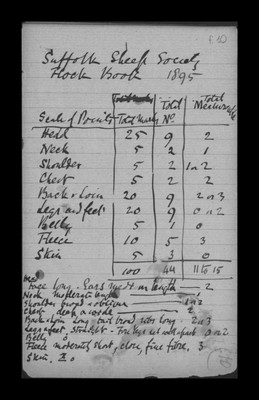 Suffolk Sheep Society
Flock Book 1895
Total Total
Scale of Points Total Marks No. Measurable
Head 25 9 2
Neck 5 2 1
Shoulder 5 2 1 or 2
Chest 5 2 2
Back & Loin 20 9 2 or 3
Legs and feet 20 9 0 or 2
Belly 5 1 0
Fleece 10 5 3
Skin 5 3 0
100 44 11 to 15
face long - Ears medm in length - 2
Neck moderate length
Shoulder broad & oblique 1 or 2
Chest deep & wide 2
Back & loin long and broad 2 or 3
Legs & feet, Straight - Fore legs set well apart 0 or 2
Belly 0
Fleece moderately short, close, fine fibre, 3
Skin. 0